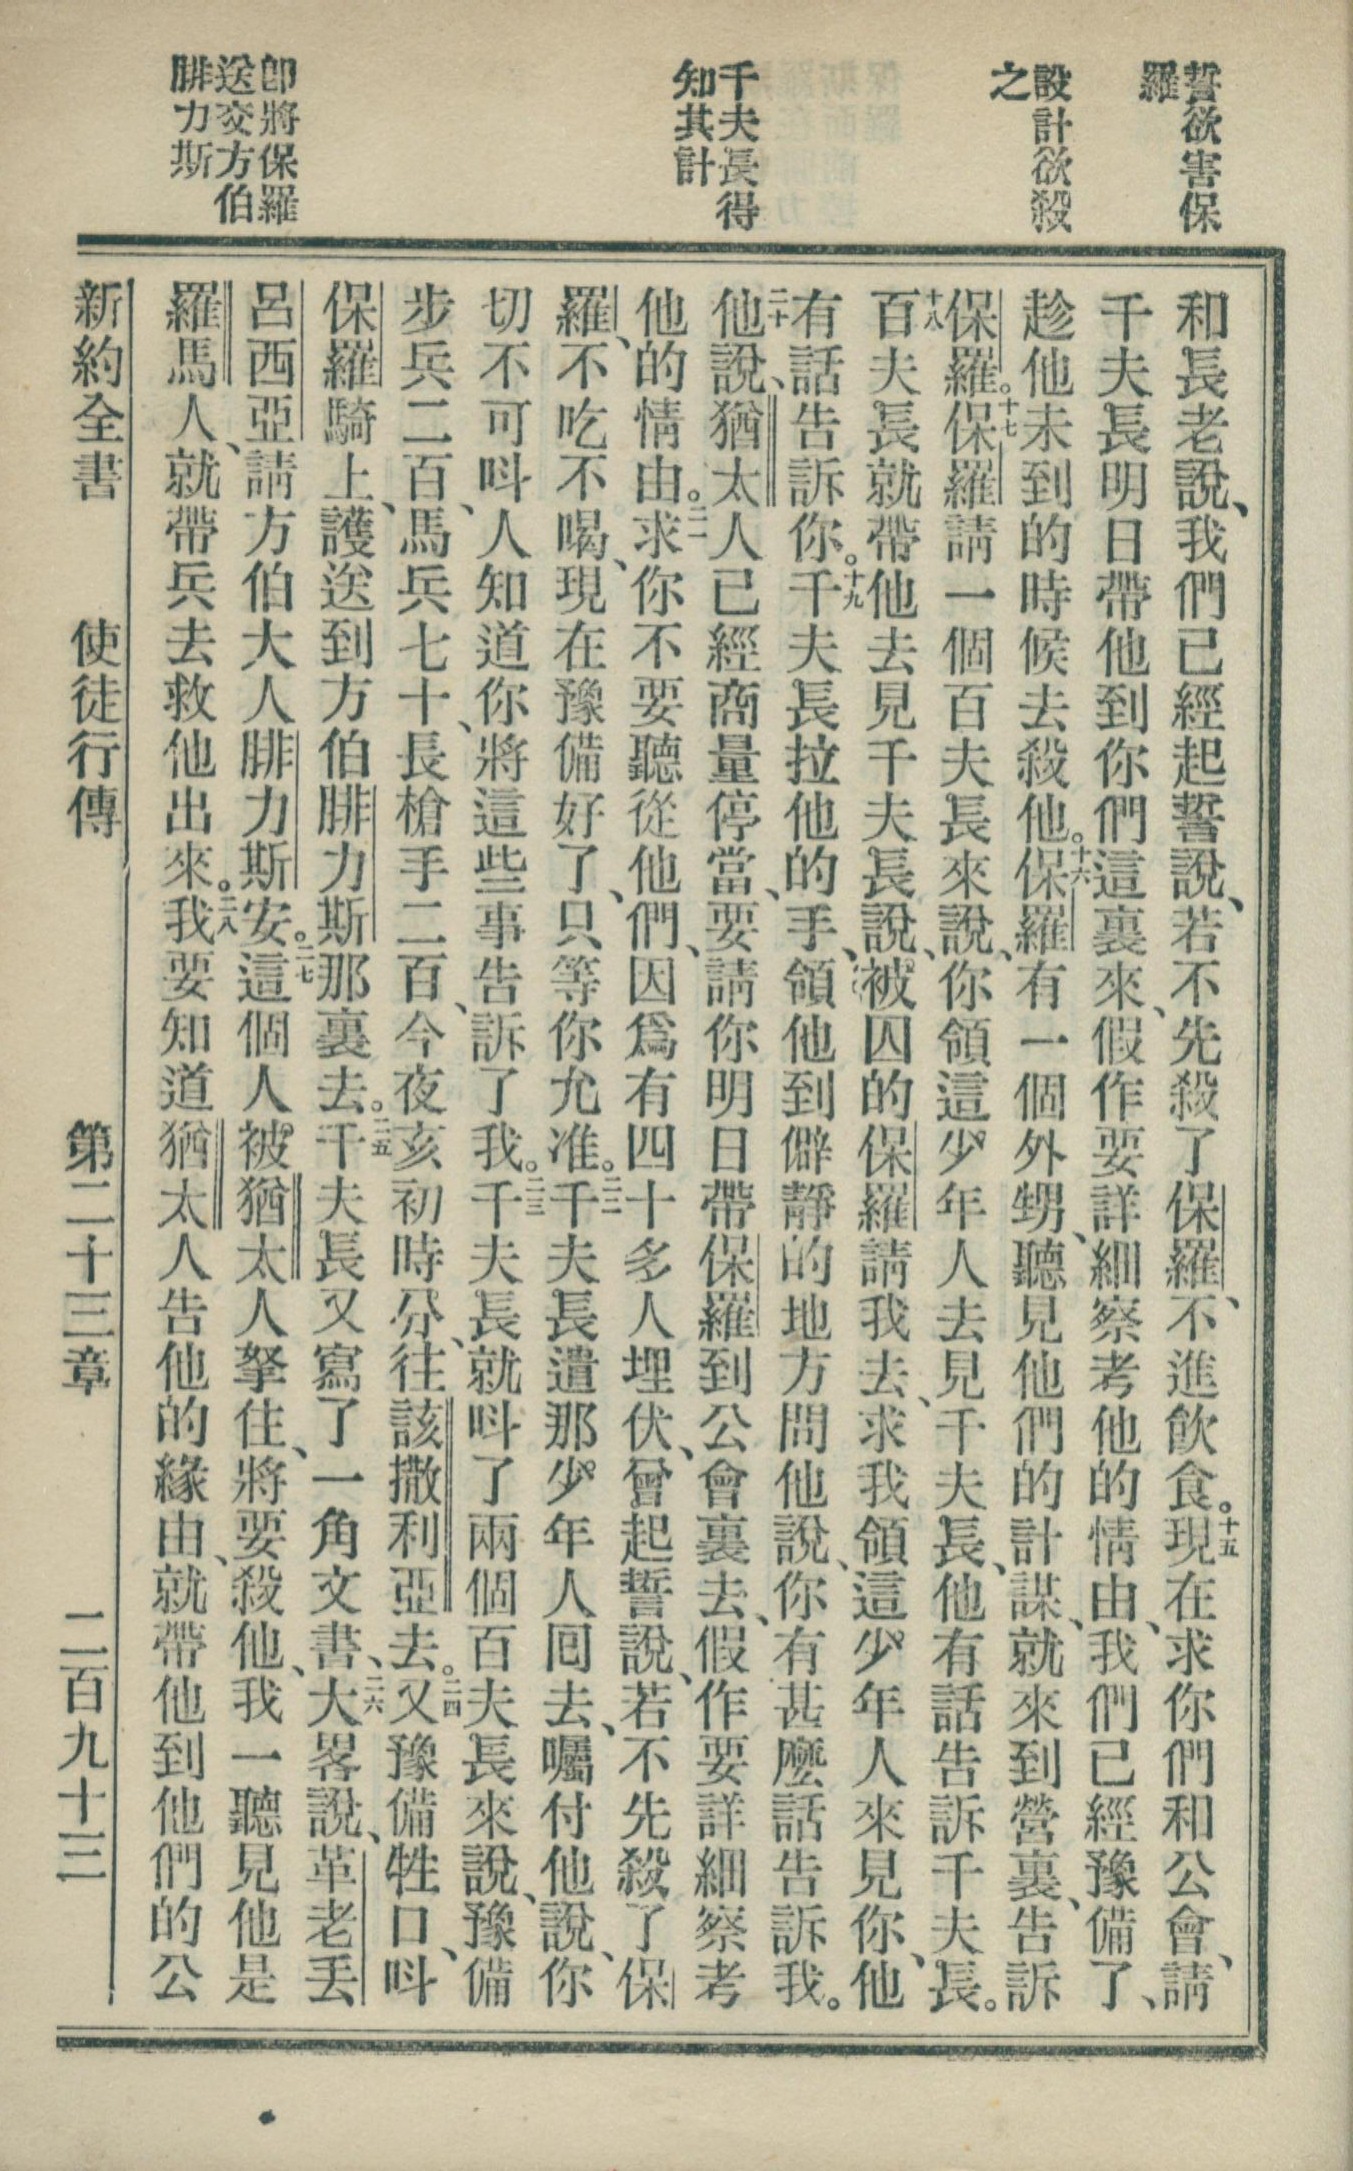 誓欲害保
羅
設計欲殺
之
千夫長得
知其計
卽將保羅
送交方伯
腓力斯
和長老說、我們已經起誓說、若不先殺了保羅、不進飲食。十五現在求你們和公會、請
千夫長明日帶他到你們這裏來、假作要詳細察考他的情由、我們已經豫備了、
趁他未到的時候去殺他。十六保羅有一個外甥、聽見他們的計謀、就來到營裏、告訴
保羅。十七保羅請一個百夫長來說、你領這少年人去見千夫長、他有話告訴千夫長。
十八百夫長就帶他去見千夫長說、被囚的保羅請我去、求我領這少年人來見你、他
有話告訴你。十九千夫長拉他的手、領他到僻靜的地方問他說、你有甚麼話告訴我。
二十他說、猶太人已經商量停當、要請你明日帶保羅到公會裏去、假作要詳細察考
他的情由。二一求你不要聽從他們、因爲有四十多人埋伏、曾起誓說、若不先殺了保
羅、不吃不喝、現在豫備好了、只等你允准。二二千夫長遣那少年人囘去、囑付他說、你
切不可呌人知道你將這些事告訴了我。二三千夫長就呌了兩個百夫長來說、豫備
步兵二百、馬兵七十、長槍手二百、今夜亥初時分、往該撒利亞去。二四又豫備牲口、呌
保羅騎上、護送到方伯腓力斯那裏去。二五千夫長又寫了一角文書、二六大畧說、革老丟
呂西亞請方伯大人腓力斯安。二七這個人被猶太人拏住、將要殺他、我一聽見他是
羅馬人、就帶兵去救他出來。二八我要知道猶太人告他的緣由、就帶他到他們的公
新約全書 使徒行傳 第二十三章 二百九十三